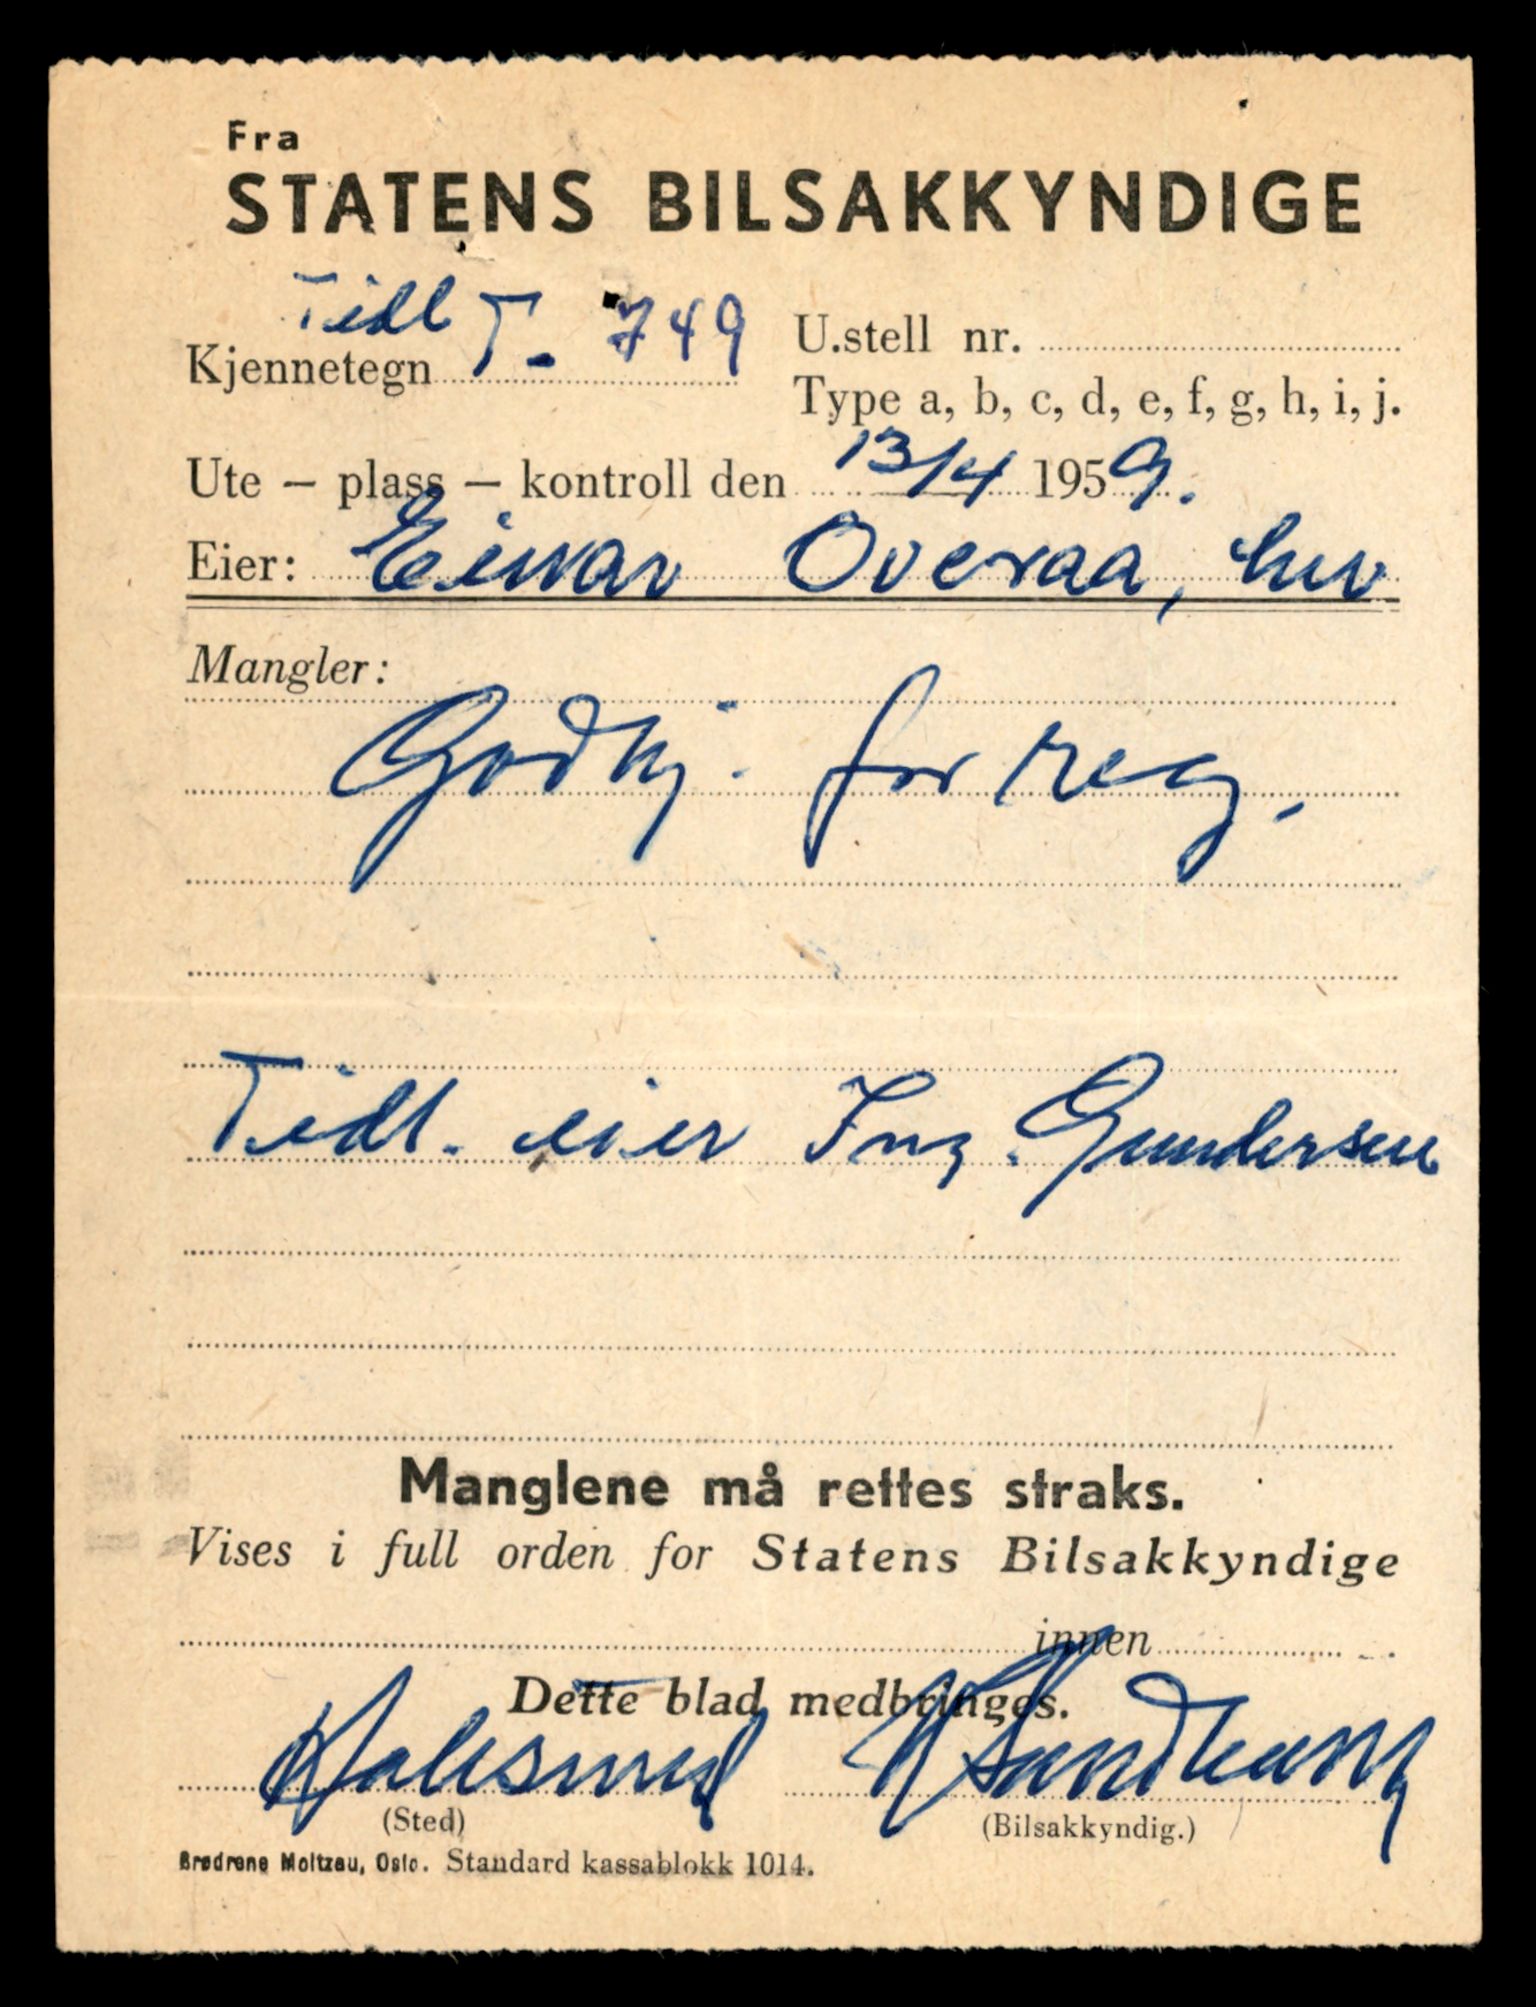 Fra
STATENS BILSAKKYNDIGE
Tidl
Kjennetegn T- 749
U.stell nr.
Type a, b, c, d, e, f, g, h, i, j.
Ute – plass – kontroll den 13/4 1959.
Eier: Einar Overaa, her
Mangler:
Godkj. for reg.
Tidl. eier Ing. Gundersen
Manglene må rettes straks.
Vises i full orden for Statens Bilsakkyndige
innen
Dette blad medbringes.
(Sted)
(Bilsakkyndig.)
Brødrene Moltzau, Oslo. Standard kassablokk 1014.